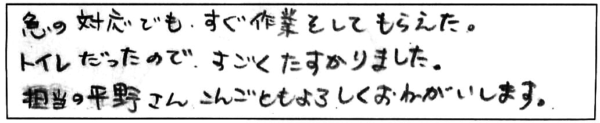 急の対応でも、すぐ作業をしてもらえた。
トイレだったので、すごくたすかりました。
担当の平野さん こんごともよろしくおねがいします。